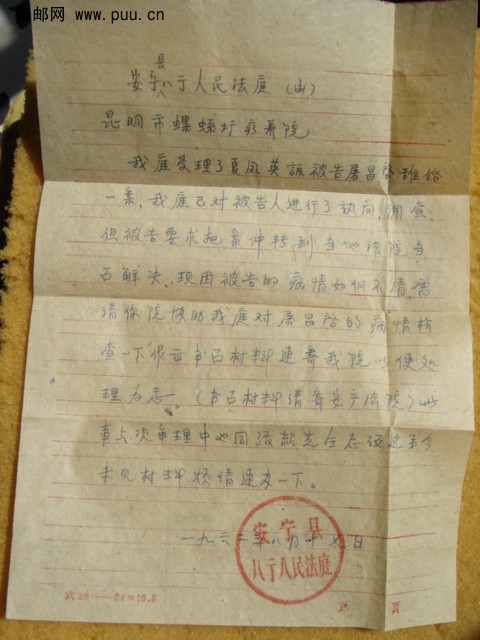 邮网 www.puu.cn
县
安宁八亍人民法庭(函)
昆明市螺蛳圩疗养院,
我庭受理了夏凤英诉被告屠昌啓离婚
一案,我庭已对被告人进行了讯问,调查,
但被告要求把案件转到当地法院当
面解决,现因被告的病情如何不清,需
请你院协助我庭对屠昌啓的病情检
查一下作出书面材料速寄我院以便处
理为荷。(书面材料请寄安宁法院)此
事上次审理中也同
先生
过至今
未见材料烦请速办一下。
一九六二年八月十七日
安宁县
八亍人民法庭
24×19.5
頁